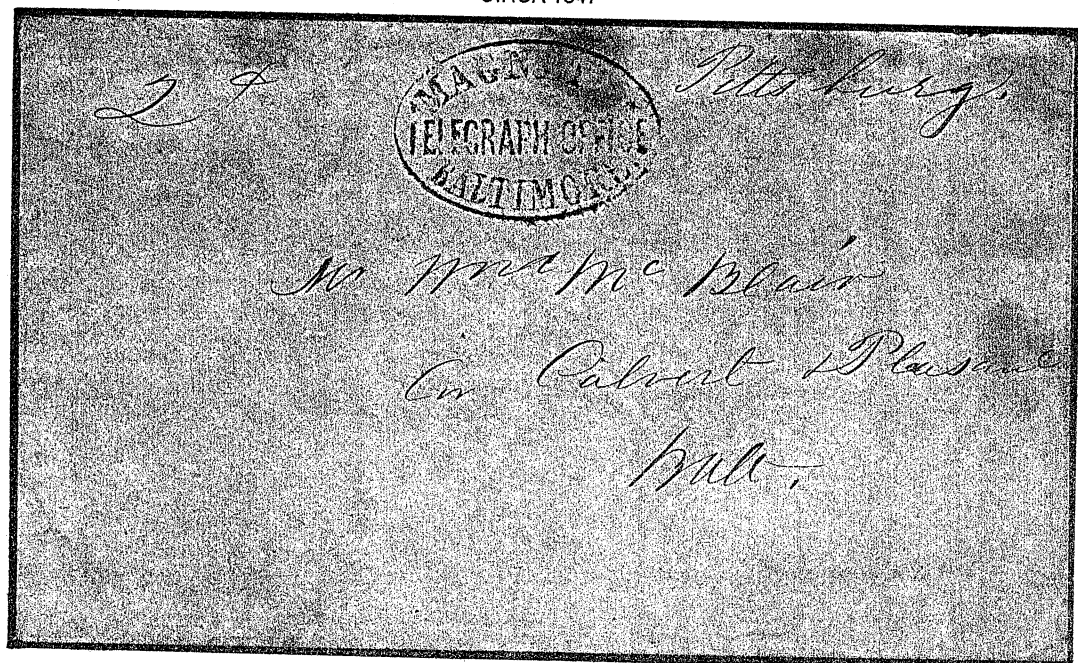 CIRCA 1847
2
MAGNETIC
TELEGRAPH OFFICE
BALTIMORE
Pittsburg.
Mr Wm Mc Blair
Cor Calvert & Pleasant
Balt.